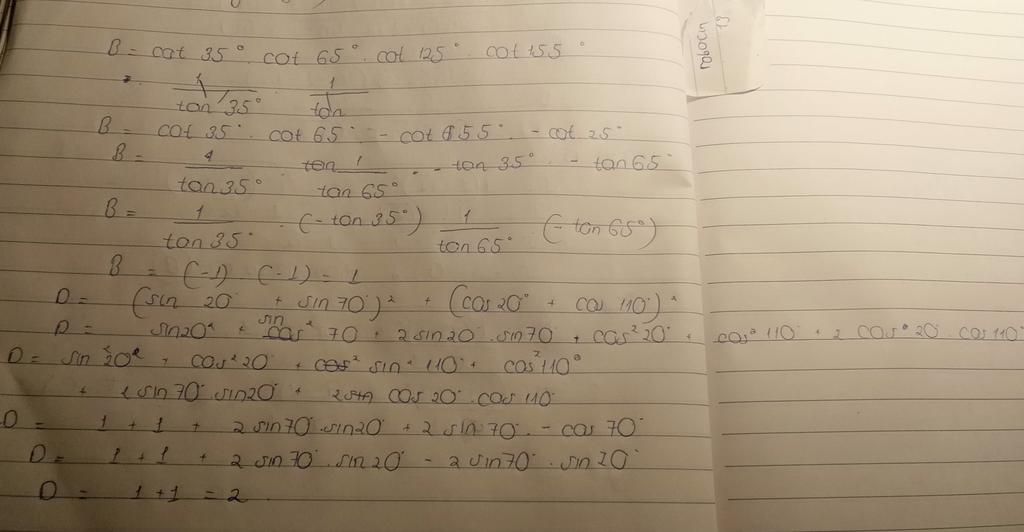 B = cot 35° . cot 65° . cot 125° . cot 155°
1/tan 35° . 1/tan
B = cot 35° . cot 65° . - cot 55° . - cot 25°
B = 1/tan 35° . 1/tan 65° . - tan 35° . - tan 65°
B = 1/tan 35° . (- tan 35°) 1/tan 65° . (- tan 65°)
B = (-1) (-1) = 1
D = (sin 20° + sin 70°)² + (cos 20° + cos 110°)²
D = sin 20² + sin² 70 + 2 sin 20° . sin 70 + cos² 20° + cos² 110° + 2 cos° 20° . cos 110°
D = sin² 20° + cos² 20° + sin² 110° + cos² 110°
+ 2 sin 70° . sin 20° + 2 cos 20° . cos 110°
D = 1 + 1 + 2 sin 70° . sin 20° + 2 sin 70° . - cos 70°
D = 1 + 1 + 2 sin 70° . sin 20° - 2 sin 70° . sin 20°
D = 1 + 1 = 2